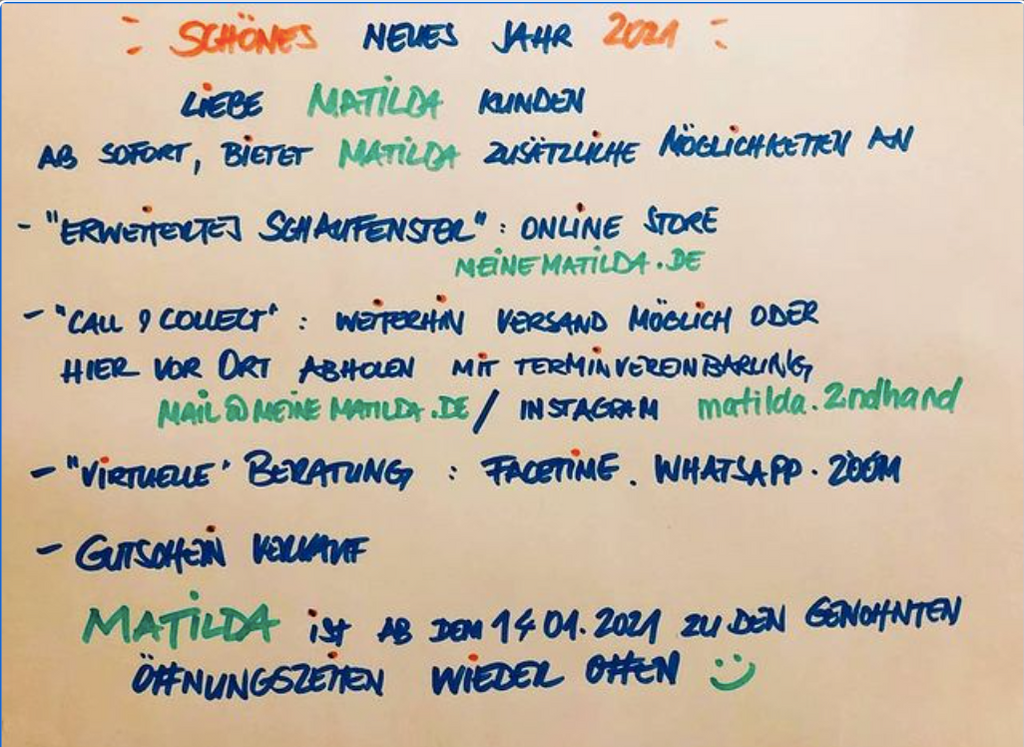 SCHÖNES NEUES JAHR 2021
LIEBE MATILDA KUNDEN
AB SOFORT, BIETET MATILDA ZUSÄTZLICHE MÖGLICHKEITEN AN
- "ERWEITERTES SCHAUFENSTER" : ONLINE STORE
MEINEMATILDA.DE
- "CALL & COLLECT" : WEITERHIN VERSAND MÖGLICH ODER
HIER VOR ORT ABHOLEN MIT TERMINVEREINBARUNG
MAIL@MEINEMATILDA.DE / INSTAGRAM matilda.2ndhand
- "VIRTUELLE" BERATUNG : FACETIME . WHATSAPP . ZOOM
- GUTSCHEIN VERKAUF
MATILDA IST AB DEM 14 01.2021 ZU DEN GEWOHNTEN
ÖFFNUNGSZEITEN WIEDER OFFEN